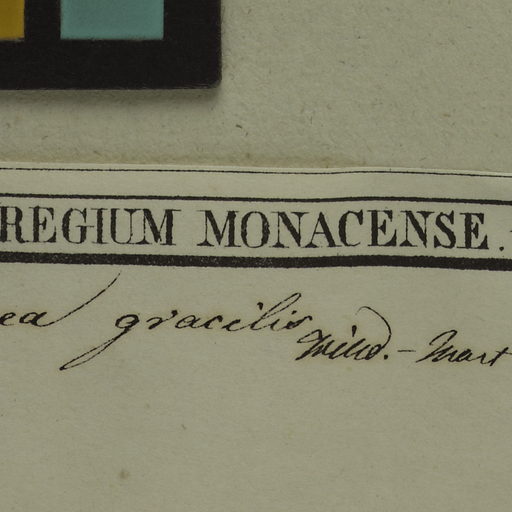 REGIUM MONACENSE.
ea gracilis Willd. – Mart